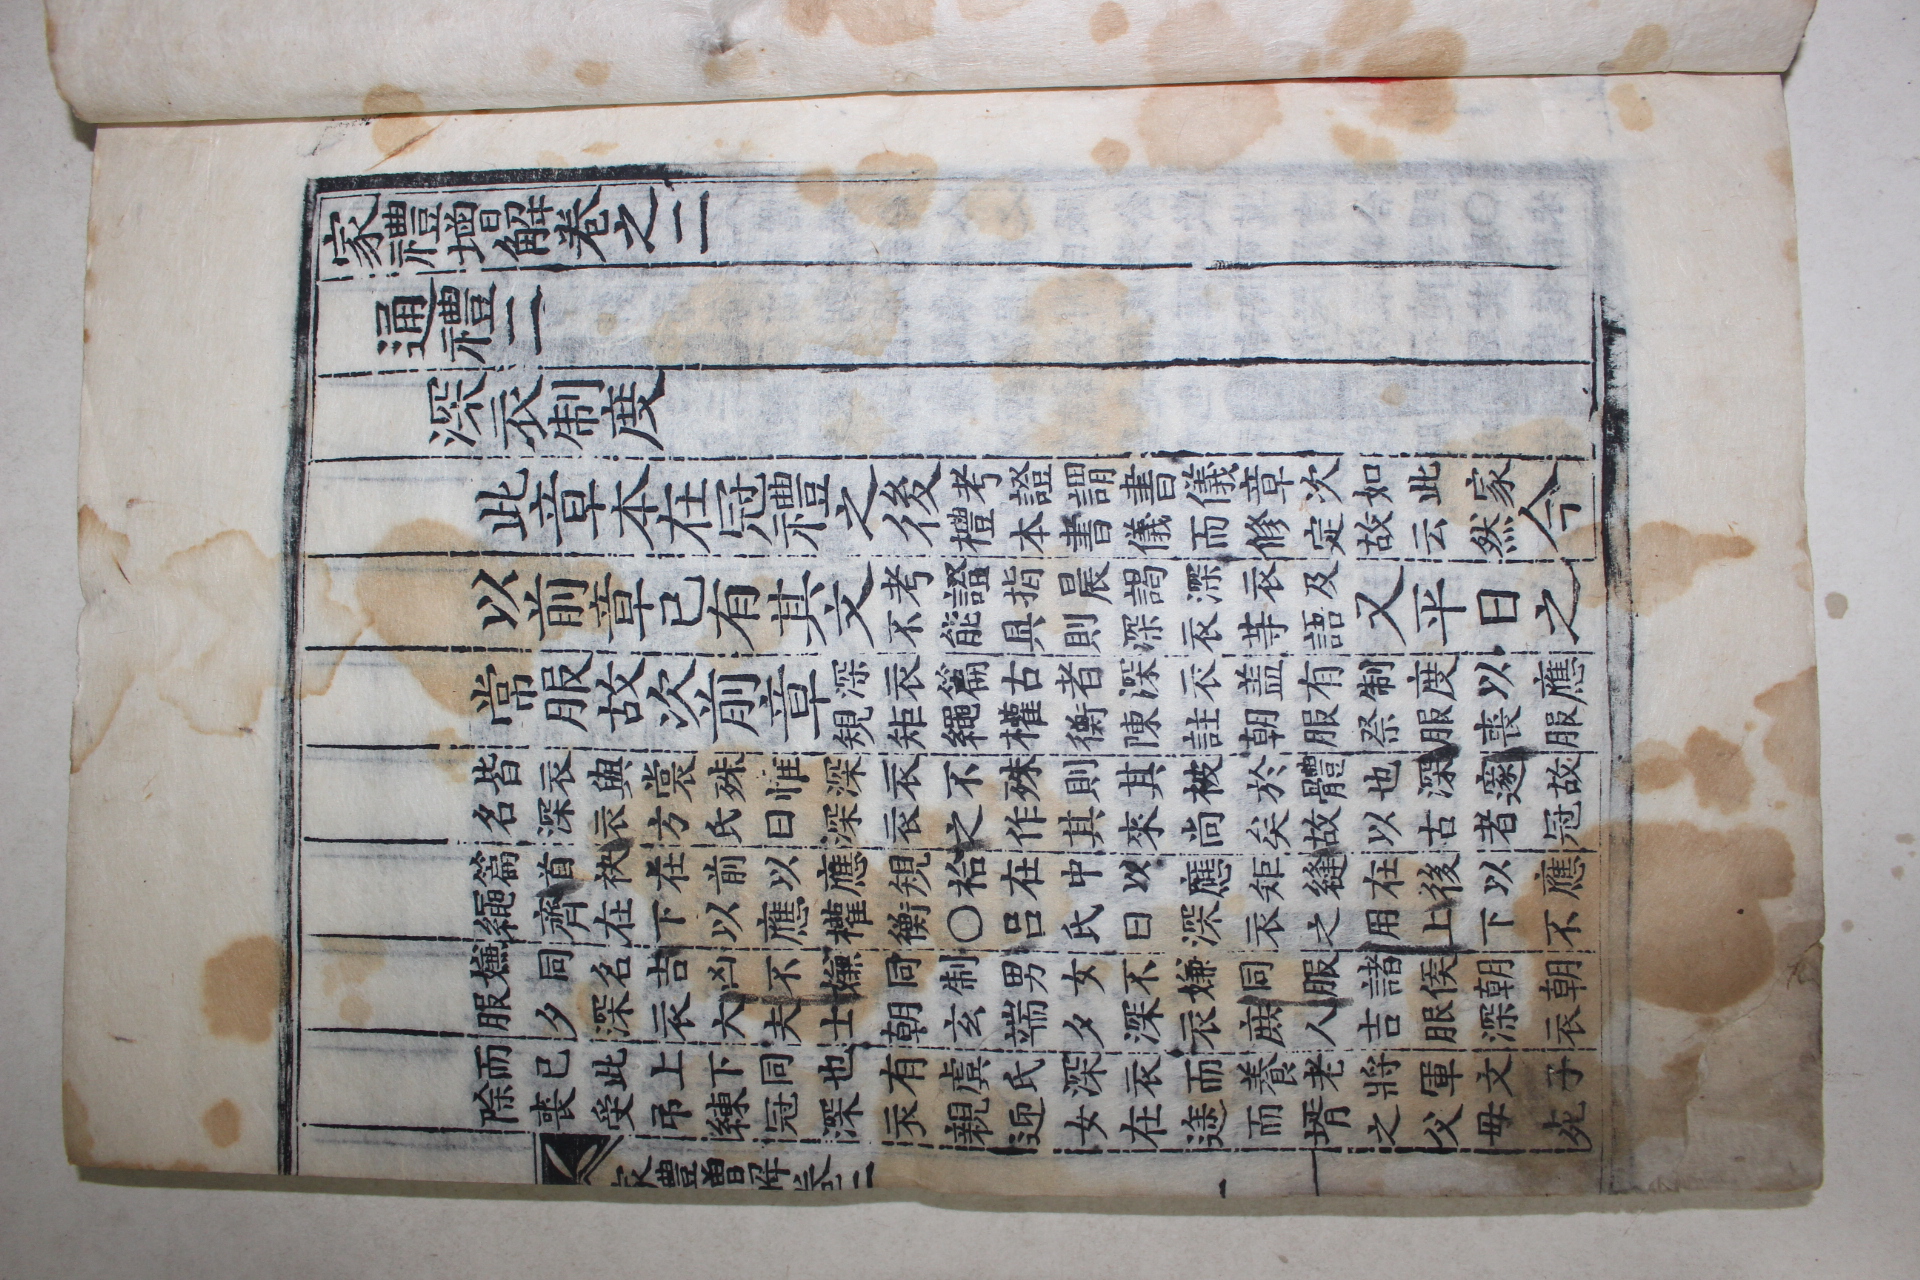 家禮增解卷之二
通禮二
深衣制度
此章本在冠禮之後考證謂書儀章次如此家
禮本書儀而修定故云然今
以前章已有其文考證指晨謁深衣及
不能具則深衣等語又平日之
常服故次前章深衣篇古者深衣盖有制度以應
規矩繩權衡陳註朝服祭服喪服
皆衣與裳殊惟深衣不殊則其被於體也深邃故
名深衣方氏曰深衣之作其來尚矣故以古者冠
篇首袂在前以應規袷在中以應矩縫在後以應
繩齊在下以應權衡○呂氏曰深衣之用上下不
嫌同名吉凶不嫌同制男女不嫌同服諸侯朝朝
服夕深衣大夫士朝玄端夕深衣庶人吉服深衣
而已此上下同也有虞氏深衣而養老將軍文子
除喪受弔練冠深衣親迎女在途而壻之父母死
家禮增解卷二